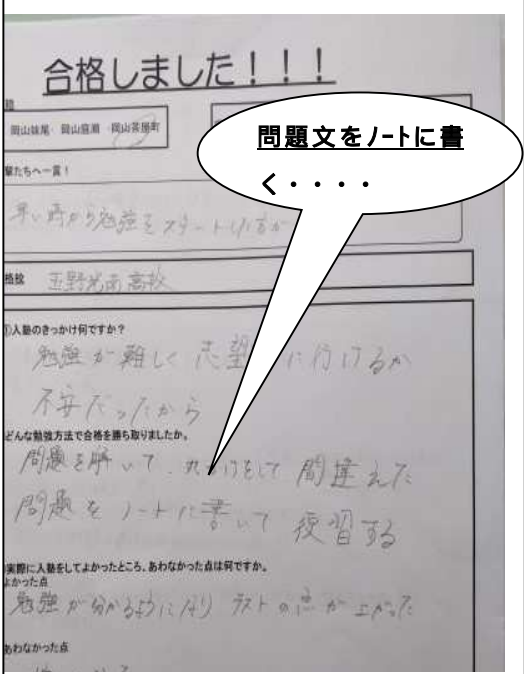 合格しました!!!
岡山妹尾・岡山庭瀬・岡山茶屋町
問題文をノートに書
く・・・・
輩たちへ一言!
早い時から勉強をスタート
格校 玉野光南高校
①入塾のきっかけ何ですか?
勉強が難しく志望 に行けるか
不安だったから
どんな勉強方法で合格を勝ち取りましたか。
問題を解いて、丸つけをして間違えた
問題をノートに書いて復習する
実際に入塾をしてよかったところ、あわなかった点は何ですか。
よかった点
勉強が分かるようになり テストの点が上がった
あわなかった点